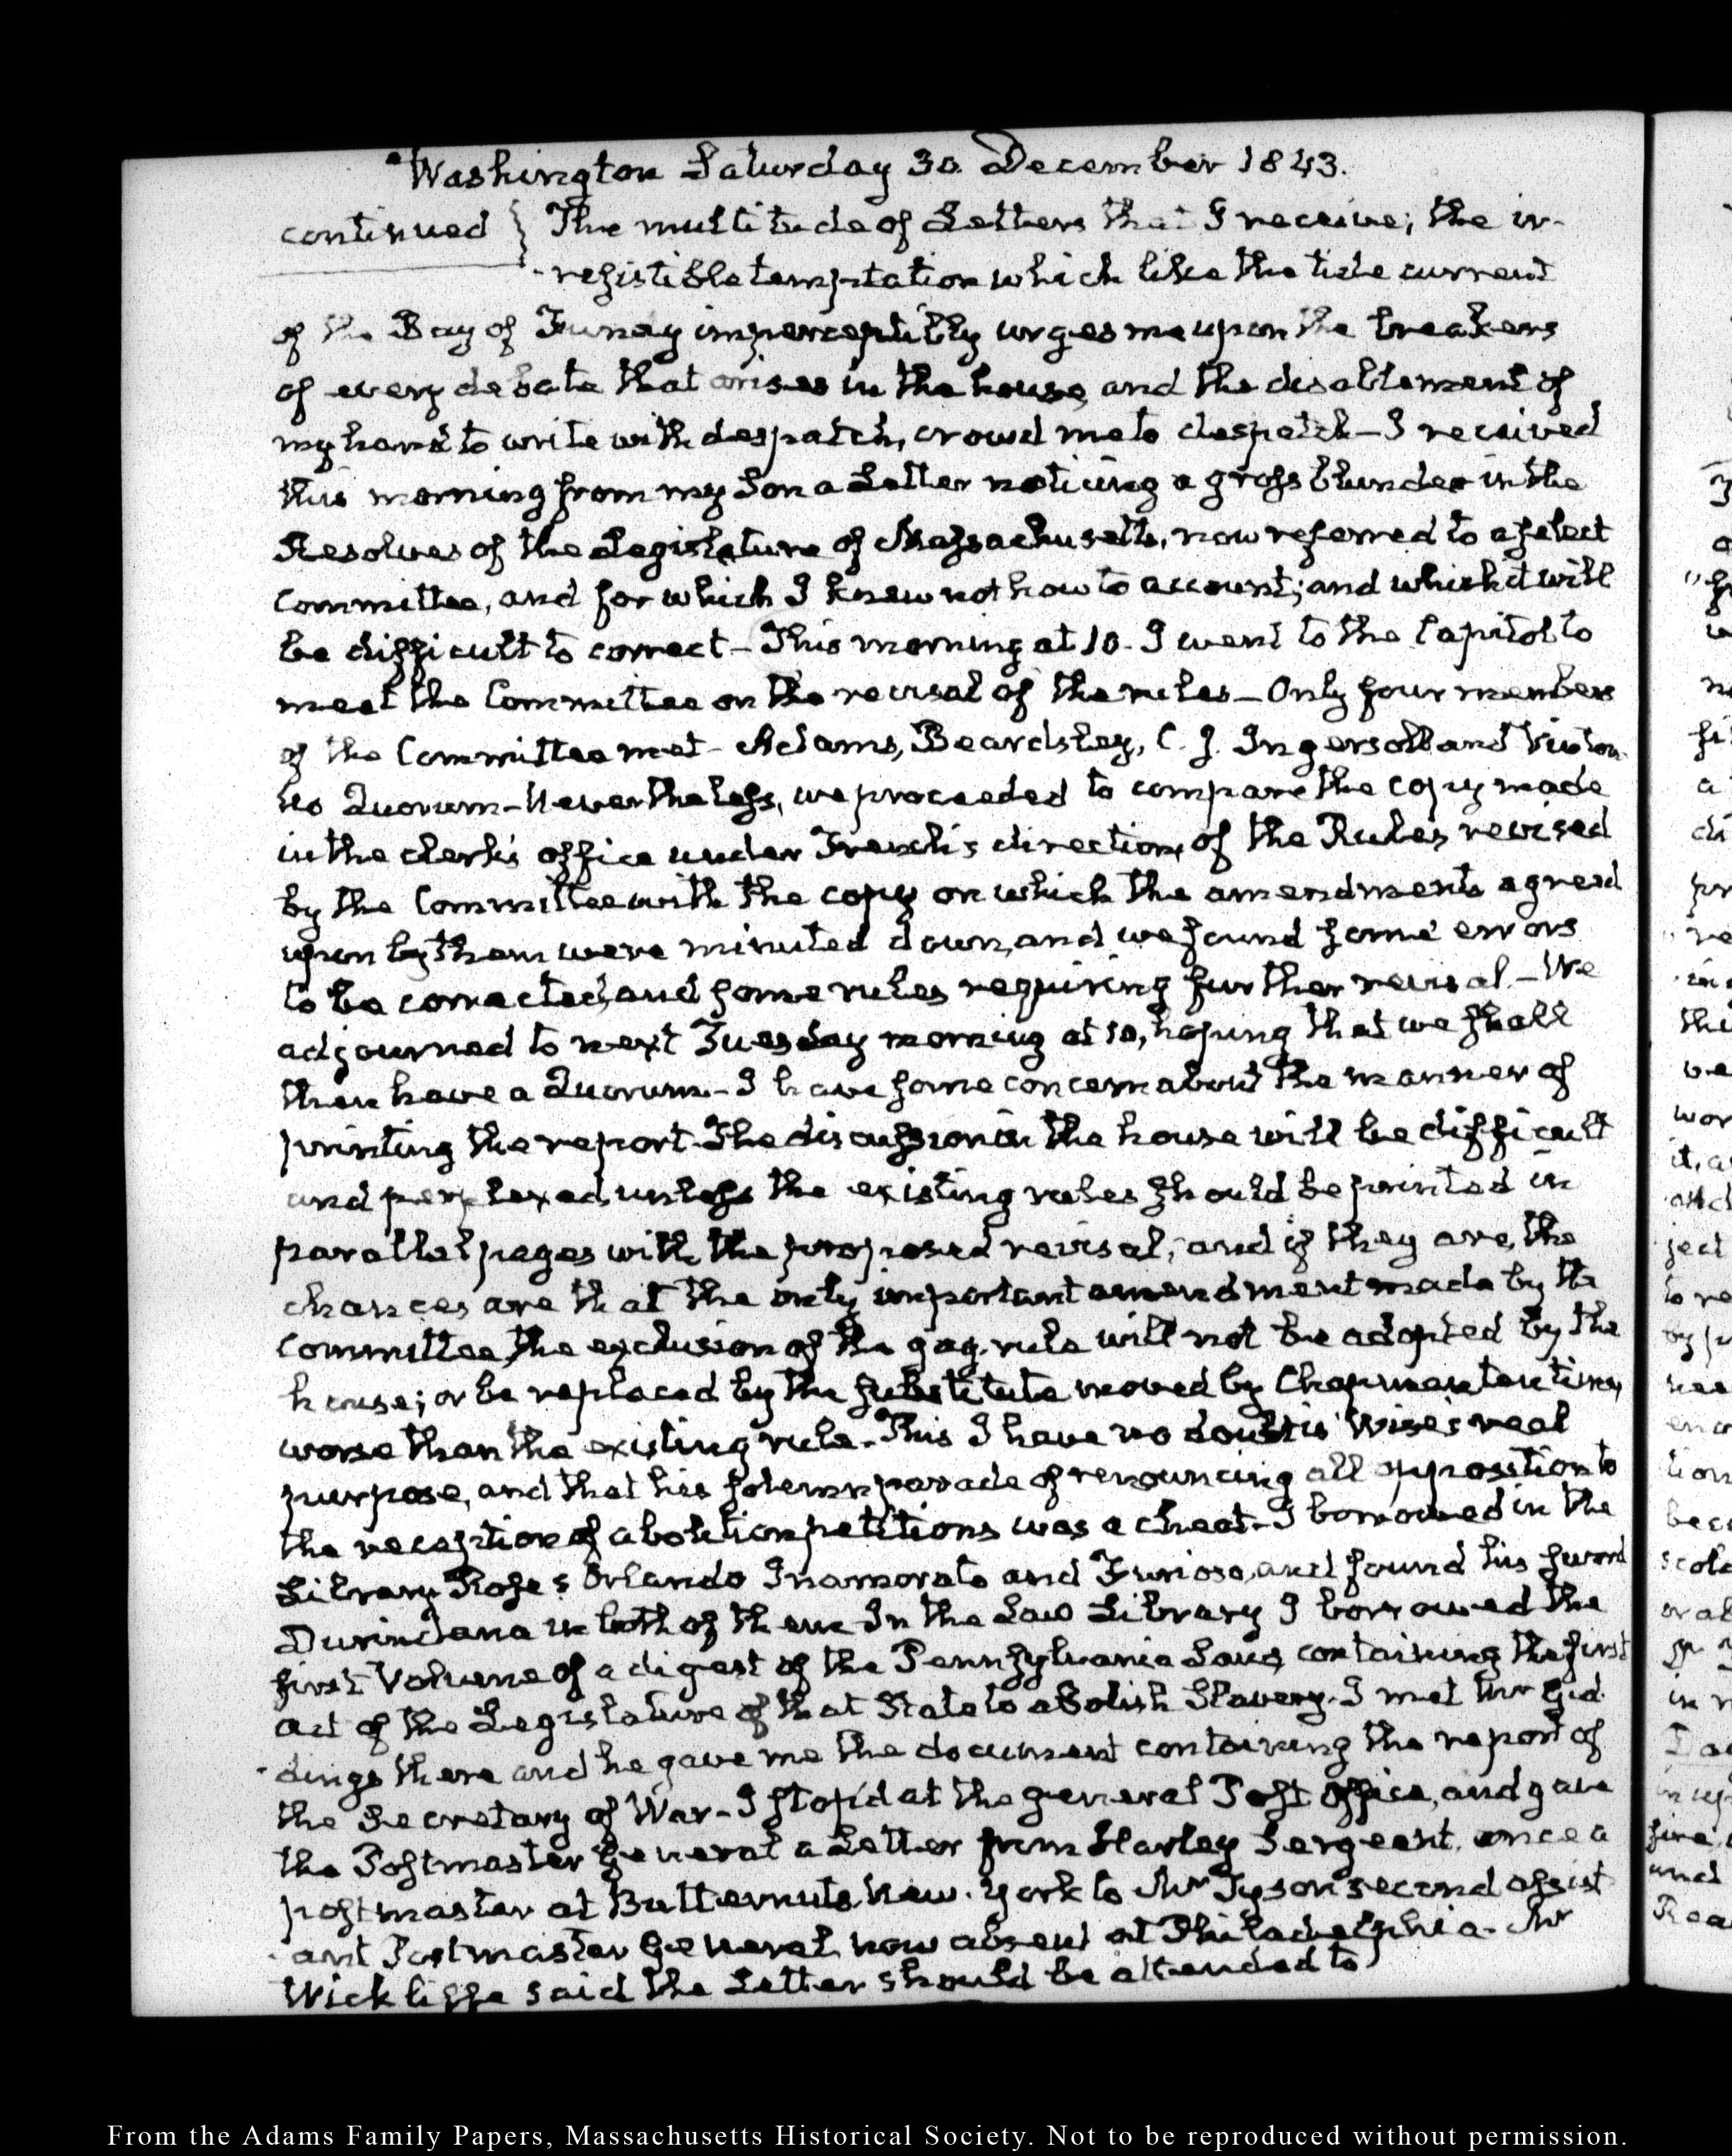 Washington Saturday 30. December 1843.
continued } The multitude of Letters that I receive; the ir-
-resistible temptation which like the tide current
of the Bay of Funday imperceptibly urges me upon the breakers
of every debate that arises in the house, and the disablement of
my hand to write with despatch, crowd me to despatch – I received
this morning from my Son a Letter noticing a gross blunder in the
Resolves of the Legislature of Massachusetts, now referred to a select
Committee, and for which I know not how to account; and which it will
be difficult to correct – This morning at 10. I went to the Capitol to
meet the Committee on the revisal of the rules – Only four members
of the Committee met – Adams, Beardsley, C. J. Ingersoll and Vinton.
No Quorum – Nevertheless, we proceeded to compare the copy made
in the clerk's office under French's direction, of the Rules, revised
by the Committee with the copy on which the amendments agreed
upon by them were minuted down, and we found some errors
to be corrected, and some rules requiring further revisal. – We
adjourned to next Tuesday morning at 10, hoping that we shall
then have a Quorum – I have some concern about the manner of
printing the report. The discussion in the house will be difficult
and perplexed, unless the existing rules should be printed in
parallel pages with the proposed revisal; and if they are, the
chances are that the only important amendment made by the
Committee, the exclusion of the gag-rule will not be adopted by the
house; or be replaced by the substitute moved by Chapman ten times
worse than the existing rule. This I have no doubt is Wise's real
purpose, and that his solemn parade of renouncing all opposition to
the reception of abolition petitions was a cheat – I borrowed in the
Library Rose's Orlando Inamorato and Furioso, and found his sword
Durindana in both of them In the Law Library I borrowed the
first Volume of a digest of the Pennsylvania Laws, containing the first
act of the Legislature of that State to abolish Slavery. I met Mr Gid-
-dings there and he gave me the document containing the report of
the Secretary of War – I stop'd at the general Post Office, and gave
the Postmaster General a Letter from Harley Sergeant, once a
postmaster at Butternuts, New-York to Mr Tyson second assist-
-ant Postmaster General, now absent at Philadelphia – Mr
Wickliffe said the Letter should be attended to
From the Adams Family Papers, Massachusetts Historical Society. Not to be reproduced without permission.